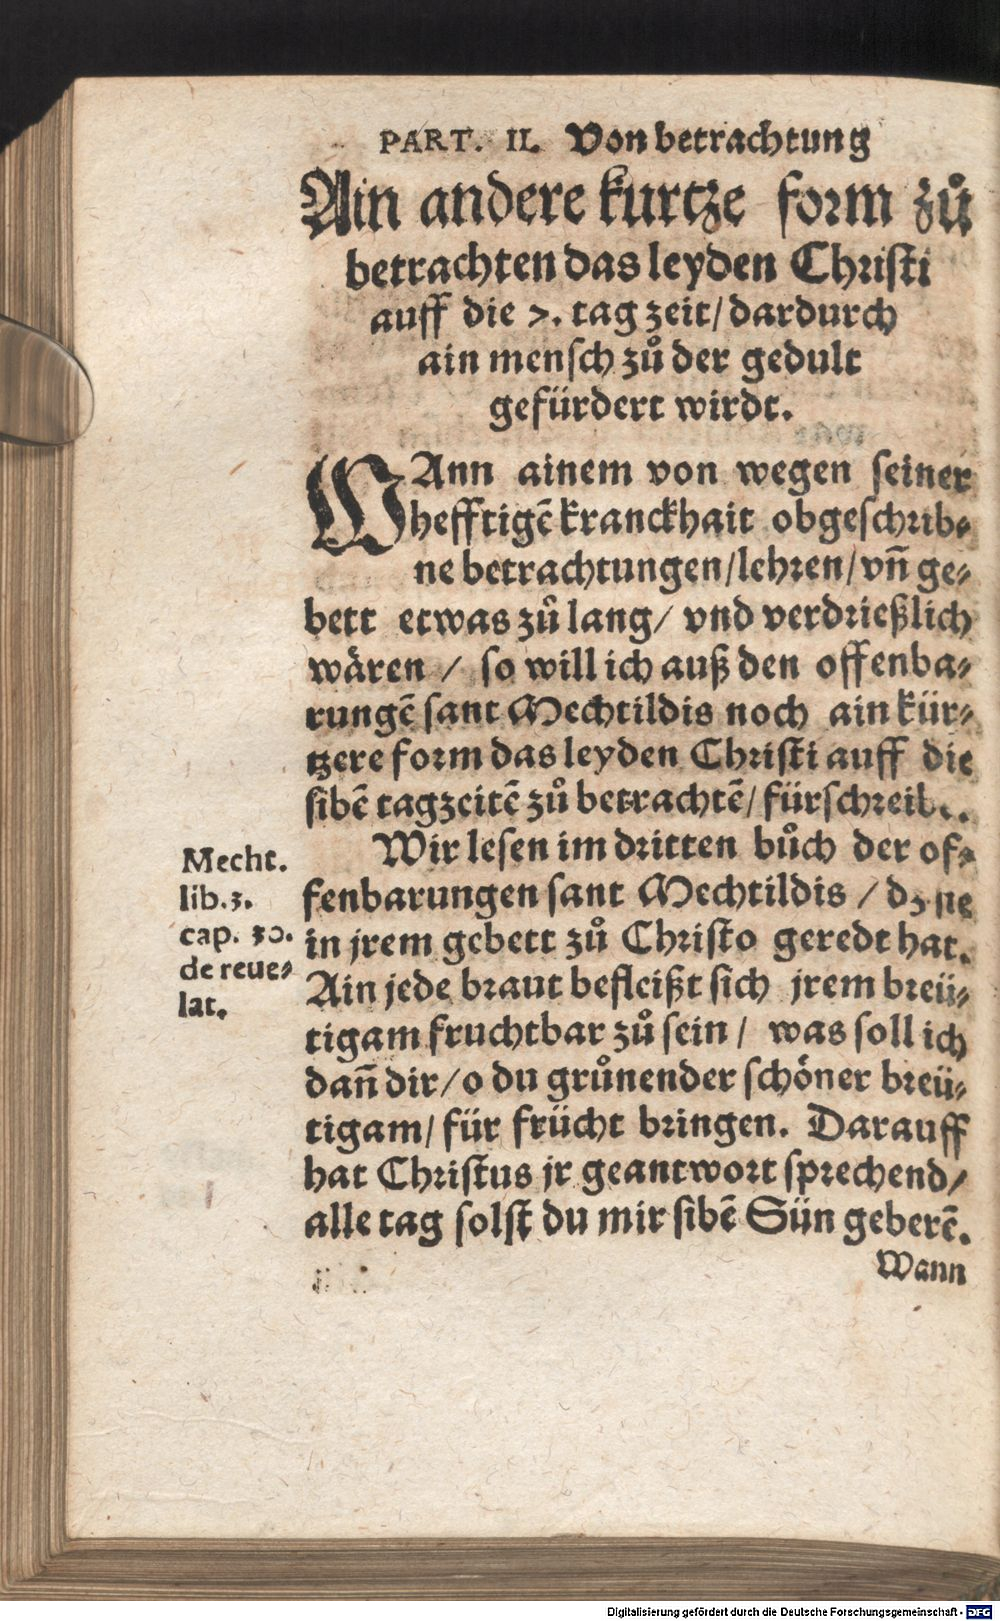 PART. II. Von betrachtung
Ain andere kurtze form zů
betrachten das leyden Christi
auff die 7. tag zeit/ dardurch
ain mensch zů der gedult
gefürdert wirdt.
WAnn ainem von wegen seiner
hefftigē kranckhait obgeschrib⸗
ne betrachtungen/ lehren/ vñ ge⸗
bett etwas zů lang/ vnd verdrießlich
wären / so will ich auß den offenba⸗
rungē sant Mechtildis noch ain kür⸗
tzere form das leyden Christi auff die
sibē tagzeitē zů betrachtē/ fürschreibē.
Wir lesen im dritten bůch der of⸗
fenbarungen sant Mechtildis / dz sie
in jrem gebett zů Christo geredt hat.
Ain jede braut befleißt sich jrem breü⸗
tigam fruchtbar zů sein / was soll ich
dañ dir/ o du grůnender schöner breü⸗
tigam/ für frücht bringen. Darauff
hat Christus jr geantwort sprechend/
alle tag solst du mir sibē Sün geberē.
Wann
Mecht.
lib. 3.
cap. 30.
de reue⸗
lat.
Digitalisierung gefördert durch die Deutsche Forschungsgemeinschaft - DFG